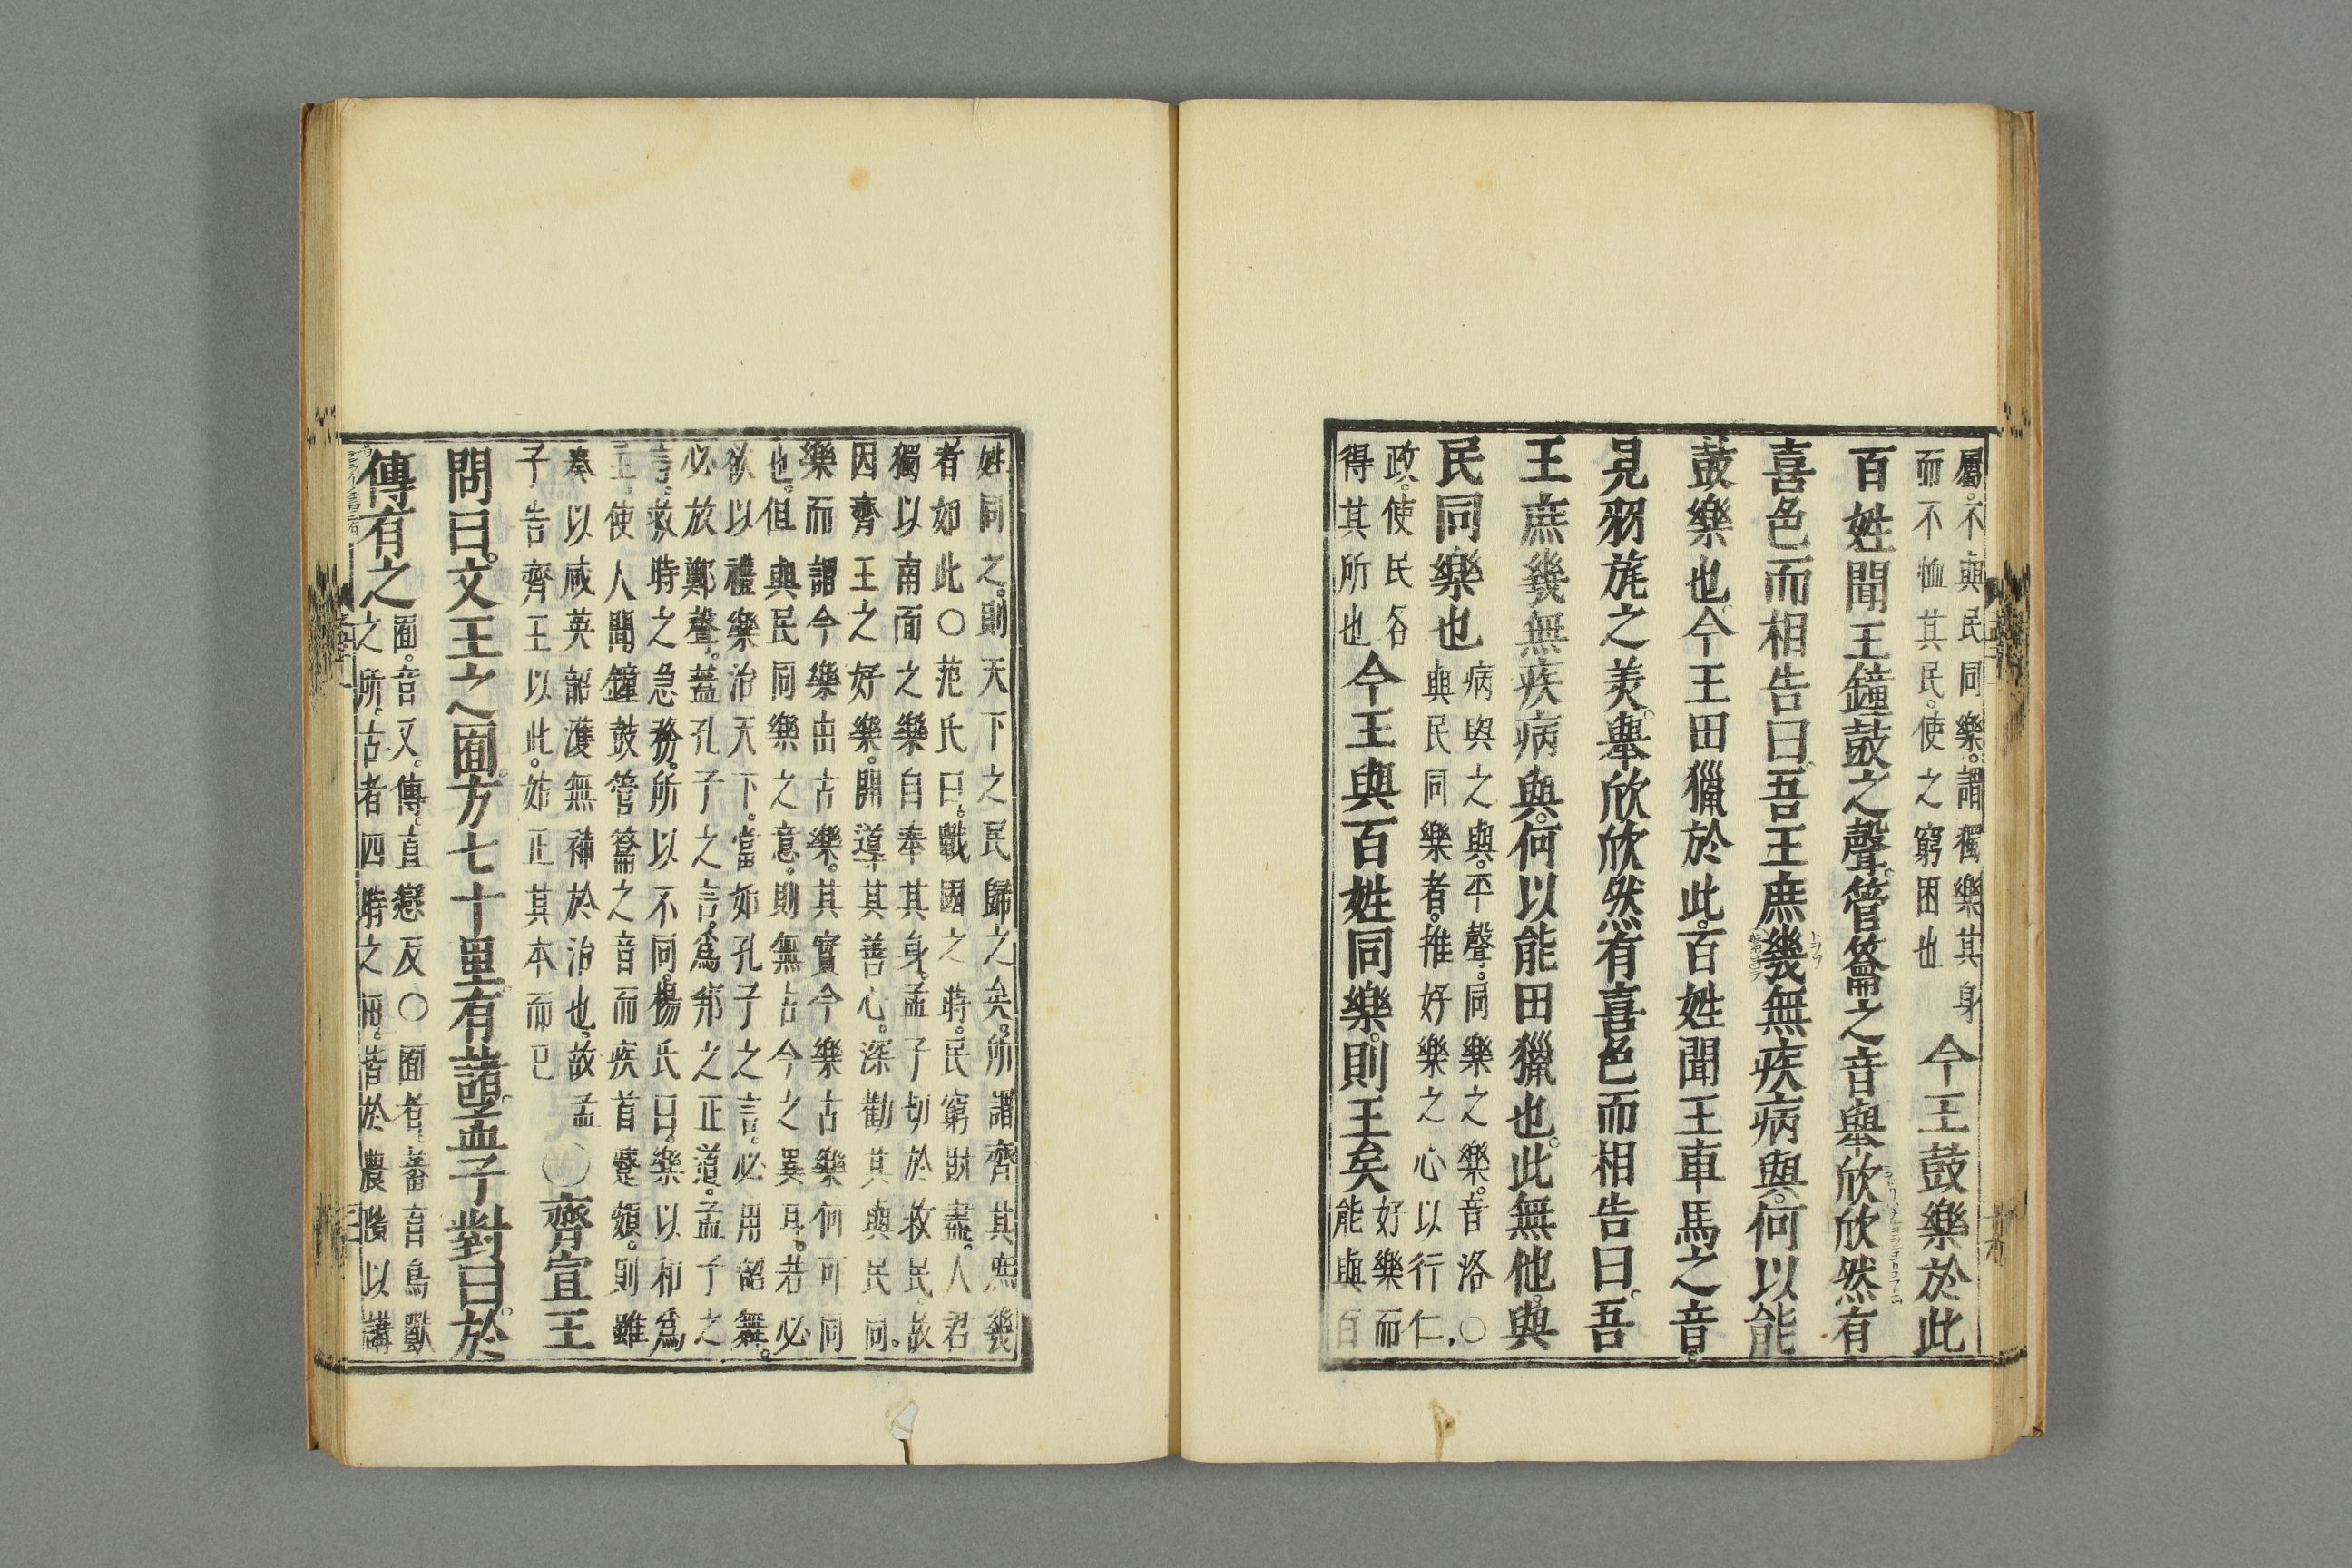 屬。不與民同樂。謂獨樂其身
而不恤其民。使之窮困也
今王鼓樂於此
百姓聞王鐘鼓之聲。管籥之音舉欣欣然有
喜色而相告曰。吾王庶幾無疾病與。何以能
鼓樂也。今王田獵於此。百姓聞王車馬之音。
見羽旄之美。舉欣欣然有喜色而相告曰。吾
王庶幾無疾病與。何以能田獵也。此無他。與
民同樂也
病與之與。平聲。同樂之樂。音洛○
與民同樂者。推好樂之心以行仁
政。使民各
得其所也
今王與百姓同樂。則王矣
好樂而
能與百
姓同之。則天下之民歸之矣。所謂齊其庶幾
者如此○范氏曰。戰國之時。民窮財盡。人君
獨以南面之樂自奉其身。孟子切於救民。故
因齊王之好樂。開導其善心。深勸其與民同
樂而謂今樂由古樂。其實今樂古樂何可同
也。但與民同樂之意。則無古今之異耳。若必
欲以禮樂治天下。當如孔子之言。必用韶舞。
必放鄭聲。蓋孔子之言。爲邦之正道。孟子之
言。救時之急務。所以不同。楊氏曰。樂以和爲
主。使人聞鐘鼓管籥之音而疾首蹙頞。則雖
奏以咸英韶濩無補於治也。故孟
子告齊王以此。姑正其本而已
○齊宣王
問曰。文王之囿。方七十里。有諸。孟子對曰。於
傳有之
囿。音又。傳。直戀反○囿者。蕃育鳥獸
之所。古者四時之田。皆於農隙以講